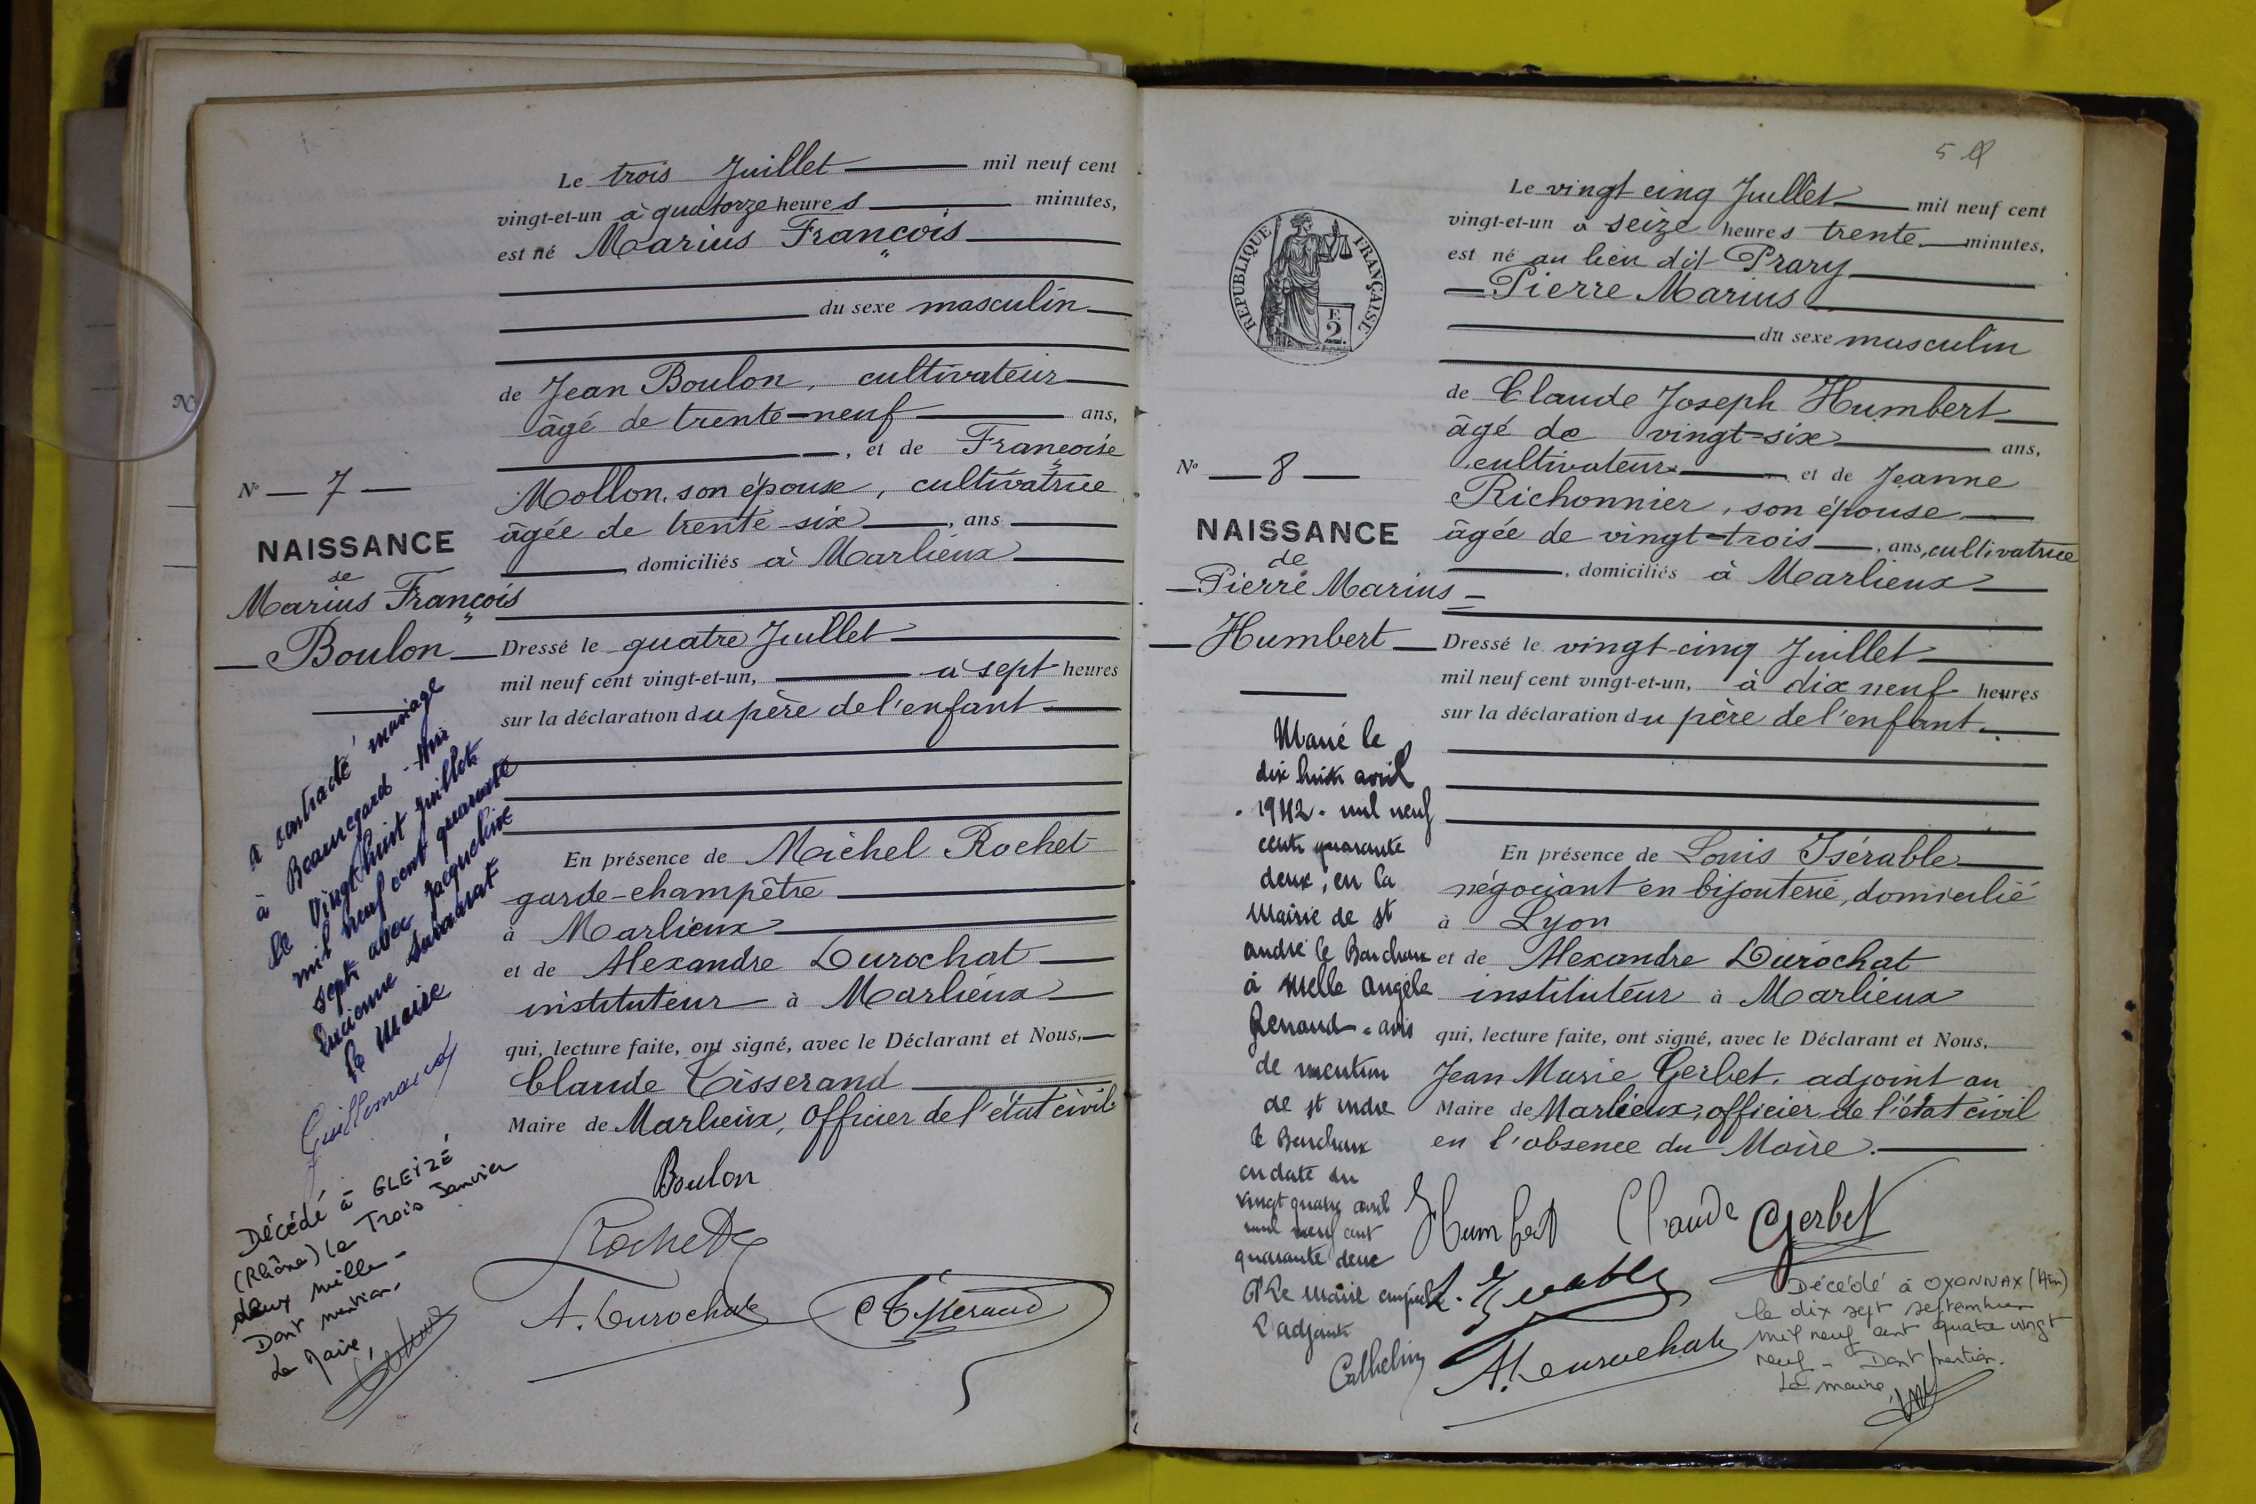 Le trois Juillet mil neuf cent
vingt-et-un à quatorze heures minutes,
est né Marius François
du sexe masculin
de Jean Boulon, cultivateur
âgé de trente-neuf ans,
, et de Françoise
Mollon, son épouse, cultivatrice
âgée de trente-six, ans
, domiciliés à Marlieux
Dressé le quatre Juillet
mil neuf cent vingt-et-un, à sept heures
sur la déclaration du père de l'enfant
En présence de Michel Rochet
garde-champêtre
à Marlieux
et de Alexandre Durochat
instituteur à Marlieux
qui, lecture faite, ont signé, avec le Déclarant et Nous,
Claude Tisserand
Maire de Marlieux, Officier de l'état civil
Boulon
Rochet
A. Durochat
C Tisserand
N° 7
NAISSANCE
de
Marius François
Boulon
a contracté mariage
à Beauregard - Ain
le vingt huit juillet
mil neuf cent quarante
sept avec Jacqueline
Lucienne
le Maire
Décédé à GLEIZÉ
(Rhône) le Trois Janvier
deux mille -
Dont mention.
Le Maire,
5
Le vingt cinq Juillet mil neuf cent
vingt-et-un à seize heures trente minutes,
est né au lieu dit Prary
Pierre Marius
du sexe masculin
de Claude Joseph Humbert
âgé de vingt-six ans,
cultivateur et de Jeanne
Richonnier, son épouse
âgée de vingt-trois, ans, cultivatrice
, domiciliés à Marlieux
Dressé le vingt-cinq Juillet
mil neuf cent vingt-et-un, à dix neuf heures
sur la déclaration du père de l'enfant.
En présence de Louis Isérable
négociant en bijouterie, domicilié
à Lyon
et de Alexandre Durochat
instituteur à Marlieux
qui, lecture faite, ont signé, avec le Déclarant et Nous,
Jean Marie Gerbet, adjoint au
Maire de Marlieux, officier de l'état civil
en l'absence du Maire.
Humbert Claude Gerbet
L. Isérable
A. Durochat
RÉPUBLIQUE FRANÇAISE
F.
2
N° 8
NAISSANCE
de
Pierre Marius
Humbert
Marié le
dix huit avril
1942 - mil neuf
cent quarante
deux, en la
Mairie de St
andré le Bouchoux
à Melle Angèle
Renaud - avis
de mention
de St andré
le Bouchoux
en date du
vingt quatre avril
mil neuf cent
quarante deux
Pr Le Maire empêché
l'adjoint
Décédé à OYONNAX (Ain)
le dix sept septembre
mil neuf cent quatre vingt
neuf - Dont mention.
Le maire,